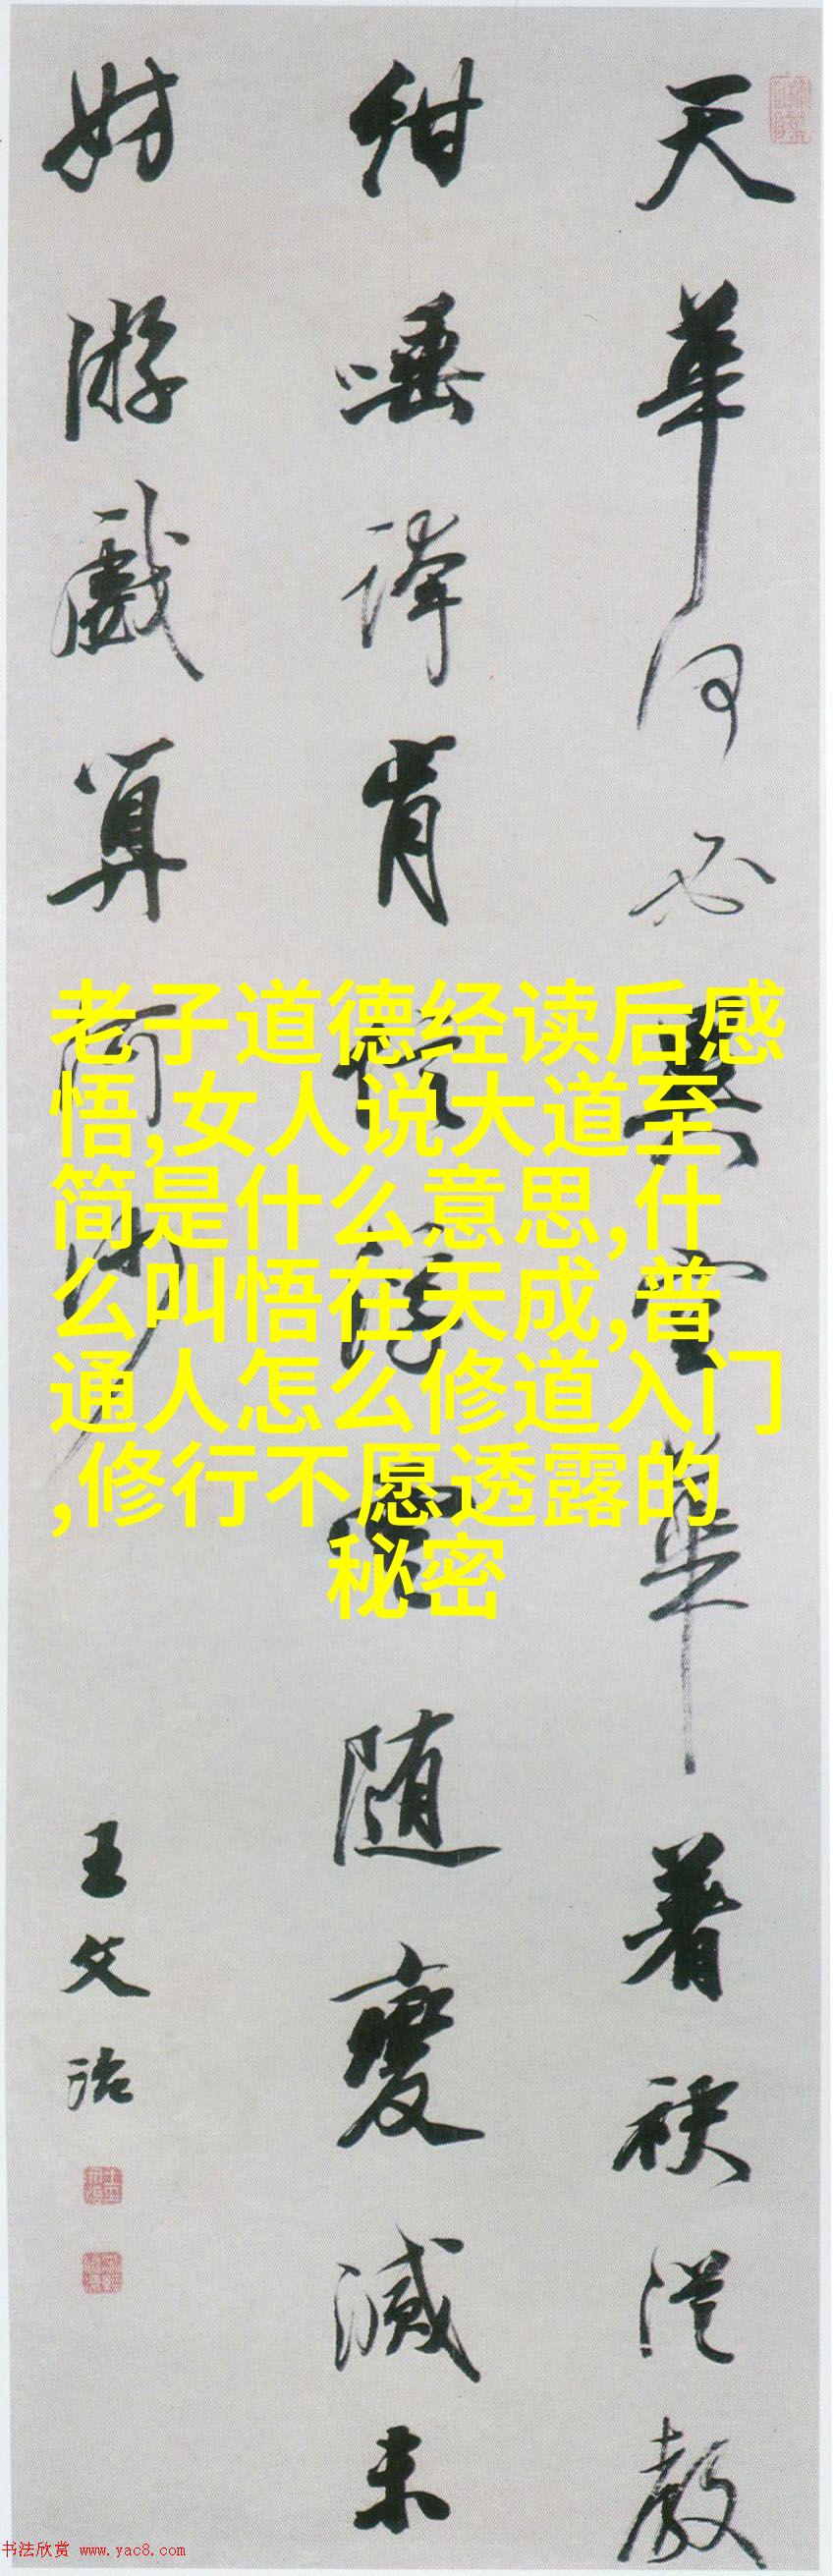 天華何必異空華著袂從教
紺唾譁肯從空隨變滅未
妨游戲算河沙
王文治
老子道德经读后感
悟,女人说大道至
简是什么意思,什
么叫悟在天成,普
通人怎么修道入门
,修行不愿透露的
秘密
书法欣赏 www.yac8.com